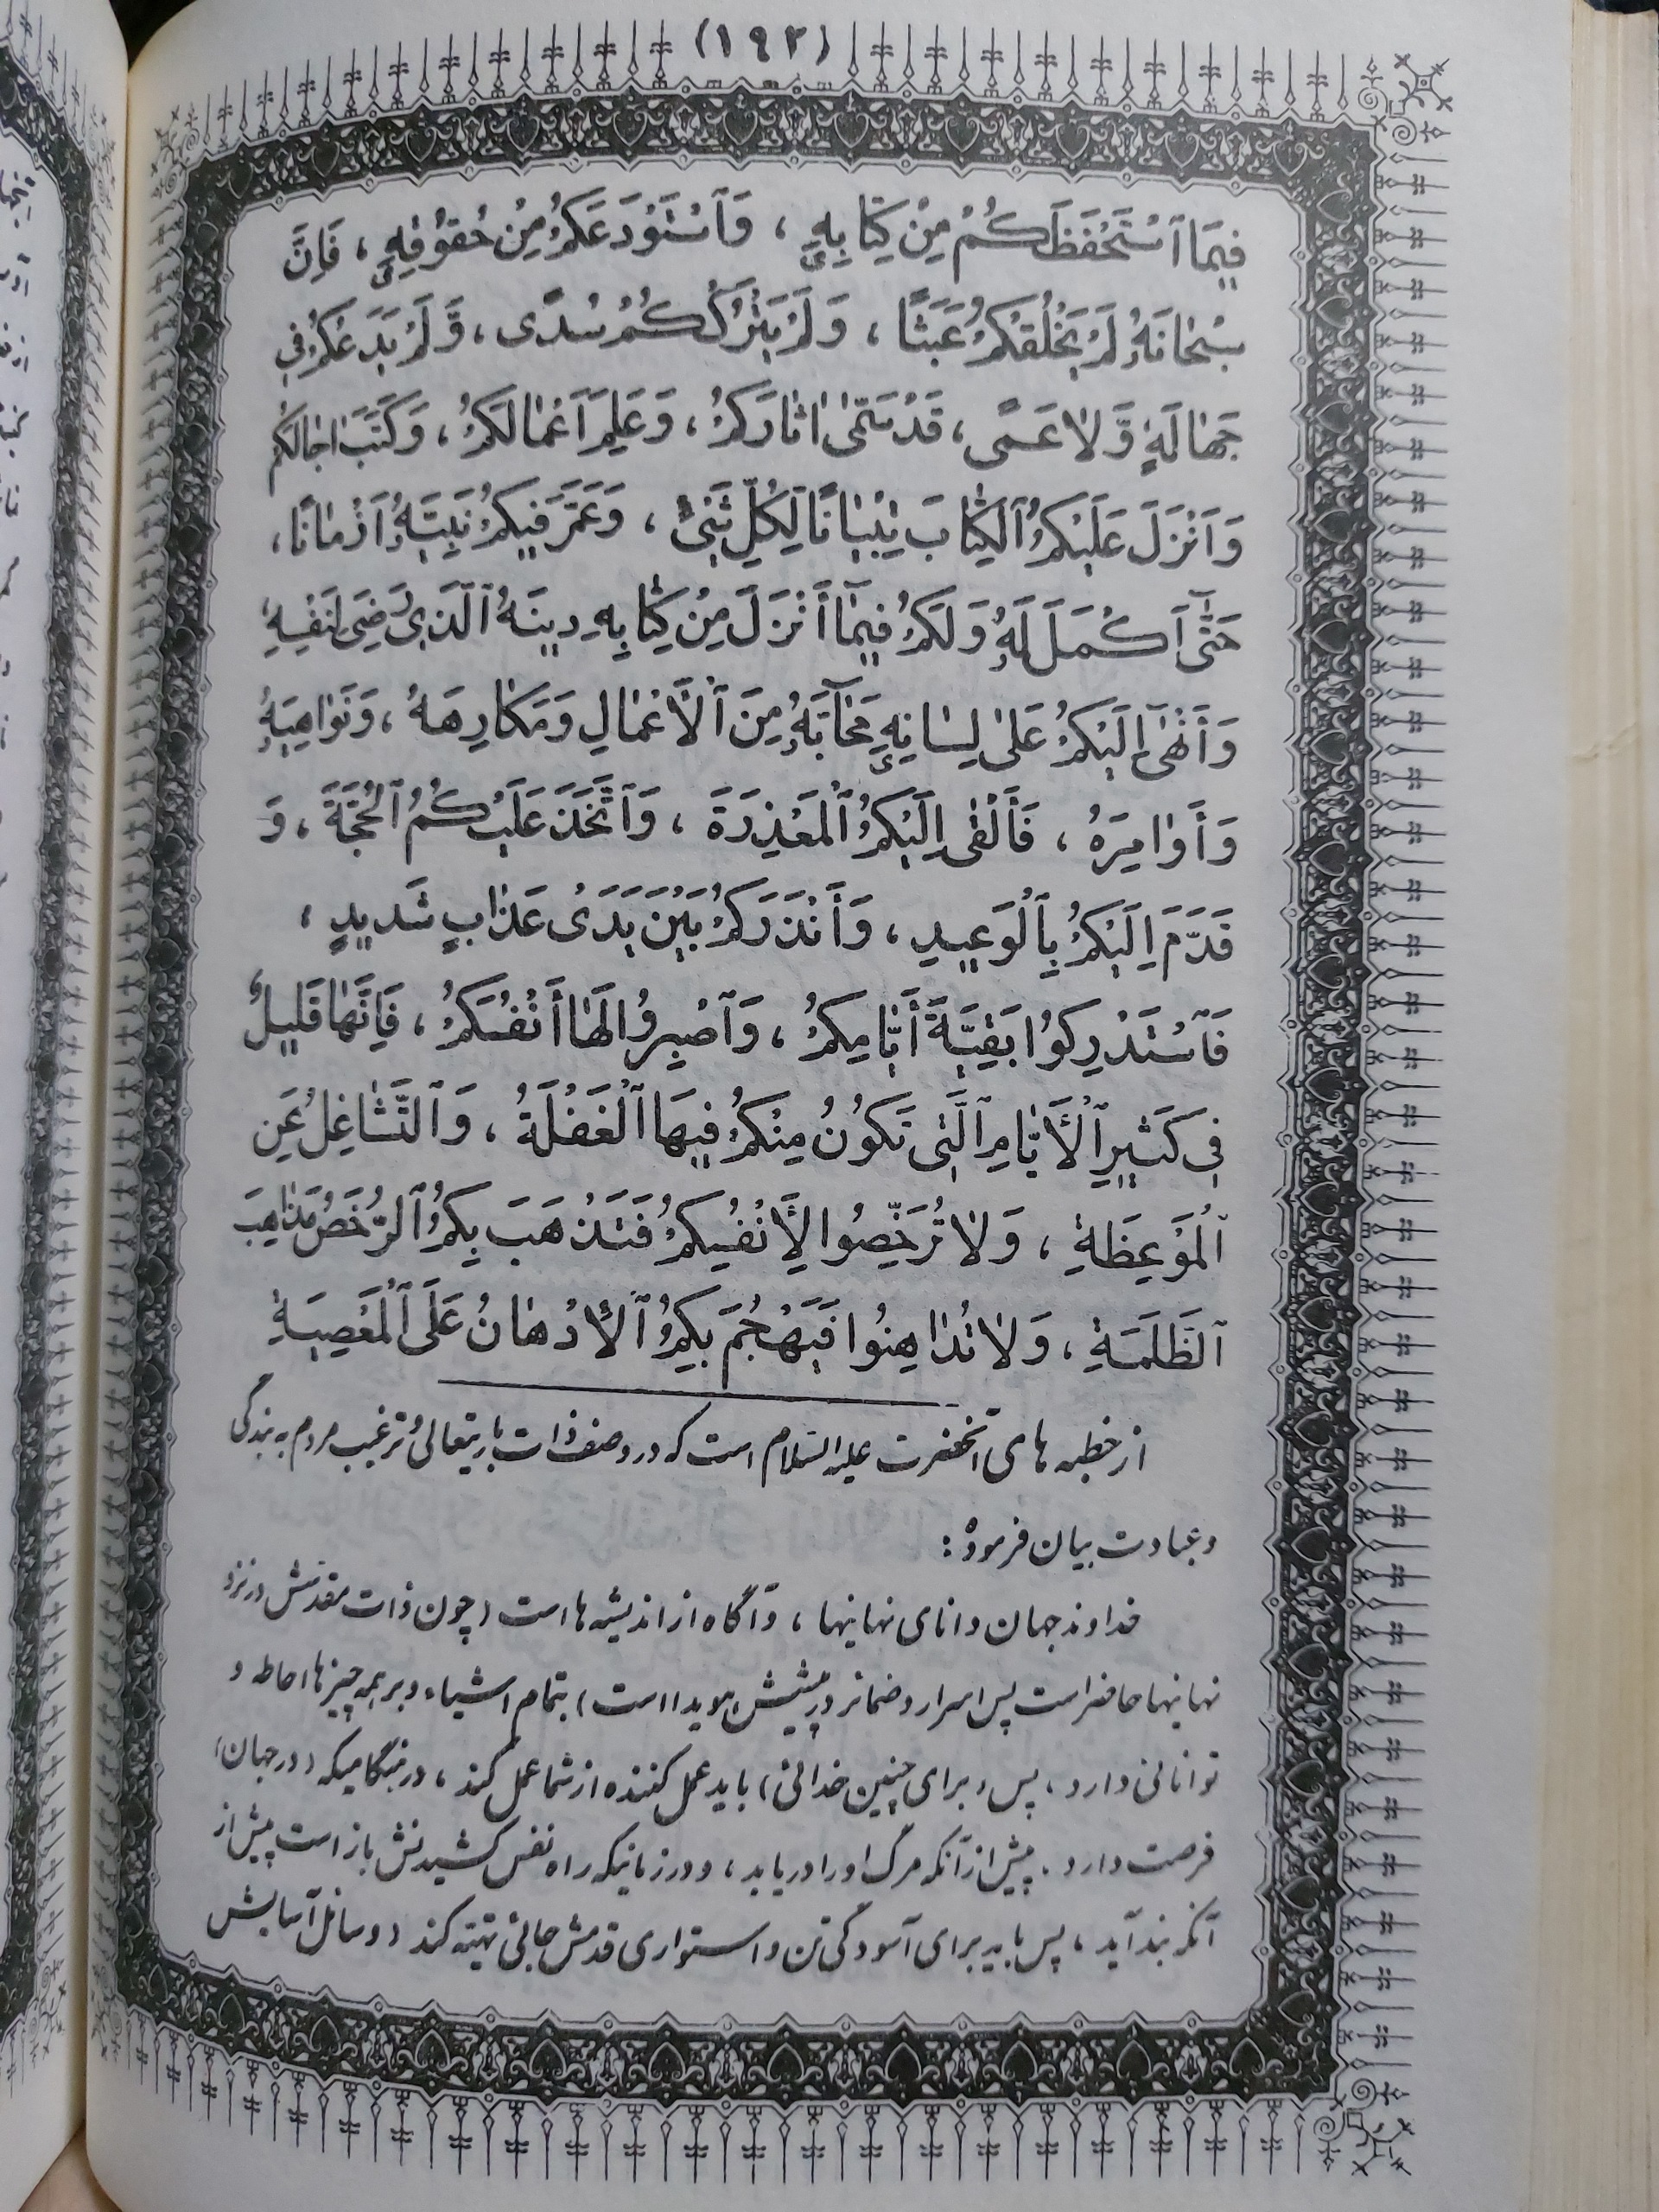 (۱۹۲)
فِيمَا ٱسْتَحْفَظَكُمْ مِنْ كِتَابِهِ، وَٱسْتَوْدَعَكُمْ مِنْ حُقُوقِهِ، فَإِنَّ
سُبْحَانَهُ لَمْ يَخْلُقْكُمْ عَبَثًا، وَلَمْ يَتْرُكْكُمْ سُدًى، وَّلَمْ يَدَعْكُمْ فِي
جَهَالَةٍ وَّلَا عَمًى، قَدْ سَمّٰى اٰثَارَكُمْ، وَعَلِمَ أَعْمَالَكُمْ، وَكَتَبَ اٰجَالَكُمْ
وَأَنْزَلَ عَلَيْكُمُ ٱلْكِتَابَ تِبْيَانًا لِكُلِّ شَيْءٍ، وَعَمَّرَ فِيكُمْ نَبِيَّهُ أَزْمَانًا،
حَتّٰى أَكْمَلَ لَهُ وَلَكُمْ فِيمَا أَنْزَلَ مِنْ كِتَابِهِ دِينَهُ ٱلَّذِي رَضِيَ لِنَفْسِهِ
وَأَنْهٰى إِلَيْكُمْ عَلٰى لِسَانِهِ مَحَآبَّهُ مِنَ ٱلْأَعْمَالِ وَمَكَارِهَهُ، وَنَوَاهِيَهُ
وَأَوَامِرَهُ، فَأَلْقٰى إِلَيْكُمُ ٱلْمَعْذِرَةَ، وَٱتَّخَذَ عَلَيْكُمُ ٱلْحُجَّةَ، وَ
قَدَّمَ إِلَيْكُمْ بِٱلْوَعِيدِ، وَأَنْذَرَكُمْ بَيْنَ يَدَىْ عَذَابٍ شَدِيدٍ،
فَٱسْتَدْرِكُوا بَقِيَّةَ أَيَّامِكُمْ، وَٱصْبِرُوا لَهَا أَنْفُسَكُمْ، فَإِنَّهَا قَلِيلٌ
فِي كَثِيرِ ٱلْأَيَّامِ ٱلَّتِي تَكُونُ مِنْكُمْ فِيهَا ٱلْغَفْلَةُ، وَٱلتَّشَاغِلُ عَنِ
ٱلْمَوْعِظَةِ، وَلَا تُرَخِّصُوا لِأَنْفُسِكُمْ فَتَذْهَبَ بِكُمُ ٱلرُّخَصُ مَذَاهِبَ
ٱلظَّلَمَةِ، وَلَا تُدَاهِنُوا فَيَهْجُمَ بِكُمُ ٱلْإِدْهَانُ عَلَى ٱلْمَعْصِيَةِ
از خطبه های آنحضرت علیه السّلام است که در وصف ذات باریتعالی و ترغیب مردم به بندگی
و عبادت بیان فرموده:
خداوند جهان دانای نهانیها، و آگاه از اندیشه ها است (چون ذات مقدّسش در نزد
نهانیها حاضر است پس اسرار و ضمائر در پیشش هویدا است) بتمام اشیاء و بر همه چیزها احاطه و
توانائی دارد، پس (برای چنین خدائی) باید عمل کننده از شما عمل کند، در هنگامیکه (در جهان)
فرصت دارد. پیش از آنکه مرگ او را دریابد، و در زمانیکه راه نفس کشیدنش باز است پیش از
آنکه بند آید، پس باید برای آسودگی تن و استواری قدمش جائی تهیّه کند (وسائل آسایش